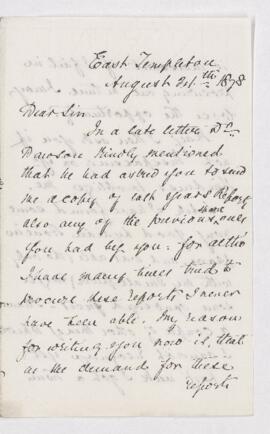 East Templeton
August 24th 1878
Dear Sir
In a late letter Dr
Dawson kindly mentioned
that he had asked you to send
me a copy of last years Report
also any of the previous ones
you had by you - for altho
I have many times tried to
procure these reports I never
have been able. My reason
for writing you now is that
as the demand for these
reports